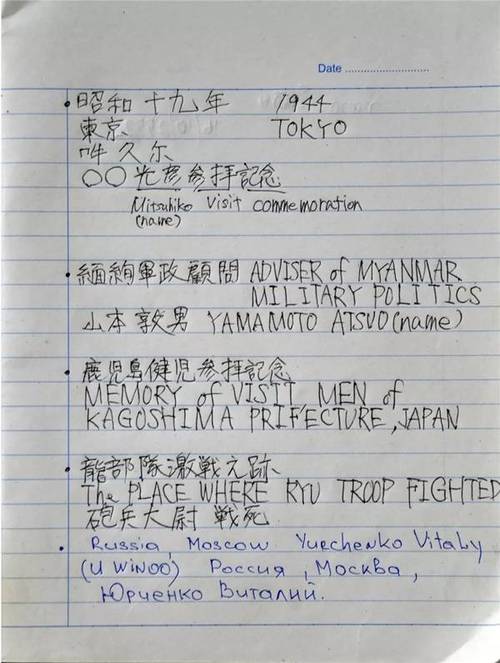 Date
• 昭和十九年 1944
東京 TOKYO
久尓
〇〇光彦参拝記念
Mitsuhiko Visit commemoration
(name)
• 緬甸軍政顧問 ADVISER of MYANMAR
MILITARY POLITICS
山本敦男 YAMAMOTO ATSUO (name)
• 鹿児島健児参拝記念
MEMORY of VISIT MEN of
KAGOSHIMA PRIFECTURE, JAPAN
• 龍部隊激戦之跡
The PLACE WHERE RYU TROOP FIGHTED
砲兵大尉 戦死
• Russia, Moscow Yurchenko Vitaly
(U WINOO) Россия, Москва,
Юрченко Виталий.